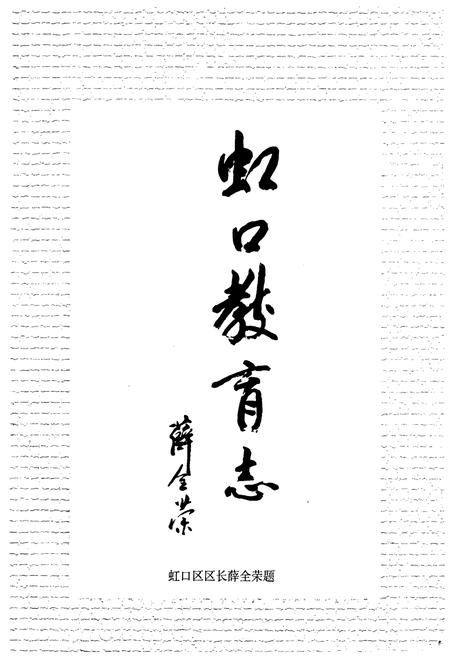 虹口教育志
薛全荣
虹口区区长薛全荣题